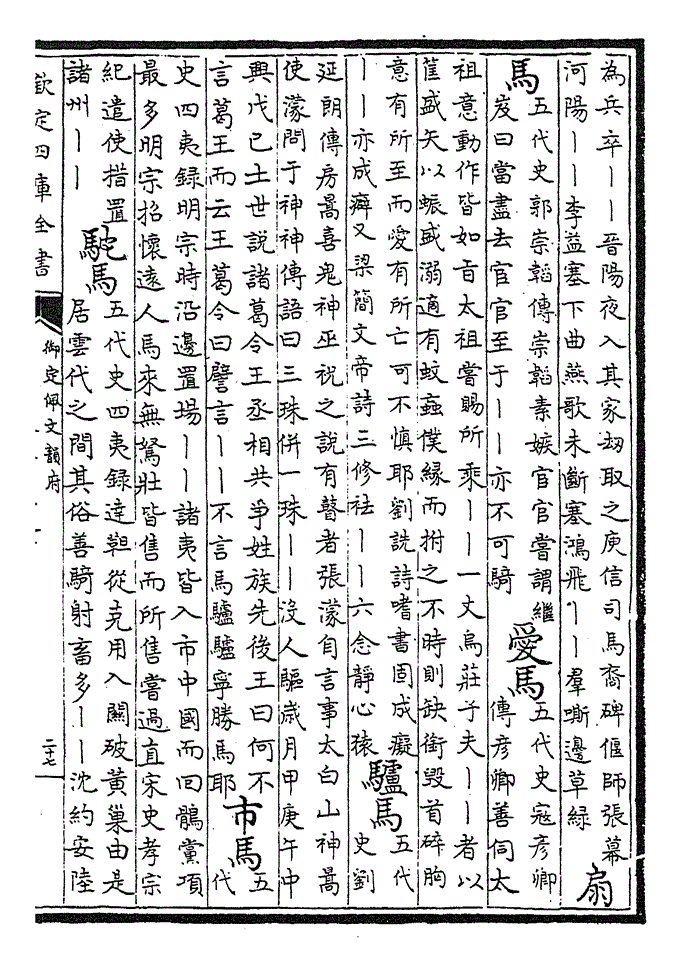 為兵卒——晉陽夜入其家刼取之庾信司馬裔碑偃師張幕
河陽——李益塞下曲燕歌未斷塞鴻飛——羣嘶邊草緑
扇
馬
五代史郭崇韜傳崇韜素嫉宦官嘗謂繼
岌曰當盡去宦官至于——亦不可騎
愛馬
五代史寇彦卿
傳彦卿善伺太
祖意動作皆如旨太祖嘗賜所乗——一丈烏莊子夫——者以
筐盛矢以蜄盛溺適有蚊䖟僕緣而拊之不時則缺銜毀首碎胸
意有所至而愛有所亡可不慎耶劉詵詩嗜書固成癡
——亦成癖又梁簡文帝詩三修祛——六念靜心猿
驢馬
五代
史劉
延朗傳房暠喜鬼神巫祝之說有瞽者張濛自言事太白山神暠
使濛問于神神傳語曰三珠併一珠——沒人驅歲月甲庚午中
興戊己土世說諸葛令王丞相共爭姓族先後王曰何不
言葛王而云王葛令曰譬言——不言馬驢驢寧勝馬耶
市馬
五
代
史四夷録明宗時沿邊置場——諸夷皆入市中國而囘鶻黨項
最多明宗招懷逺人馬來無駑壯皆售而所售嘗過直宋史孝宗
紀遣使措置
諸州——
駞馬
五代史四夷録達靼從克用入關破黄巢由是
居雲代之間其俗善騎射畜多——沈約安陸
欽定四庫全書
御定佩文韻府
二十七